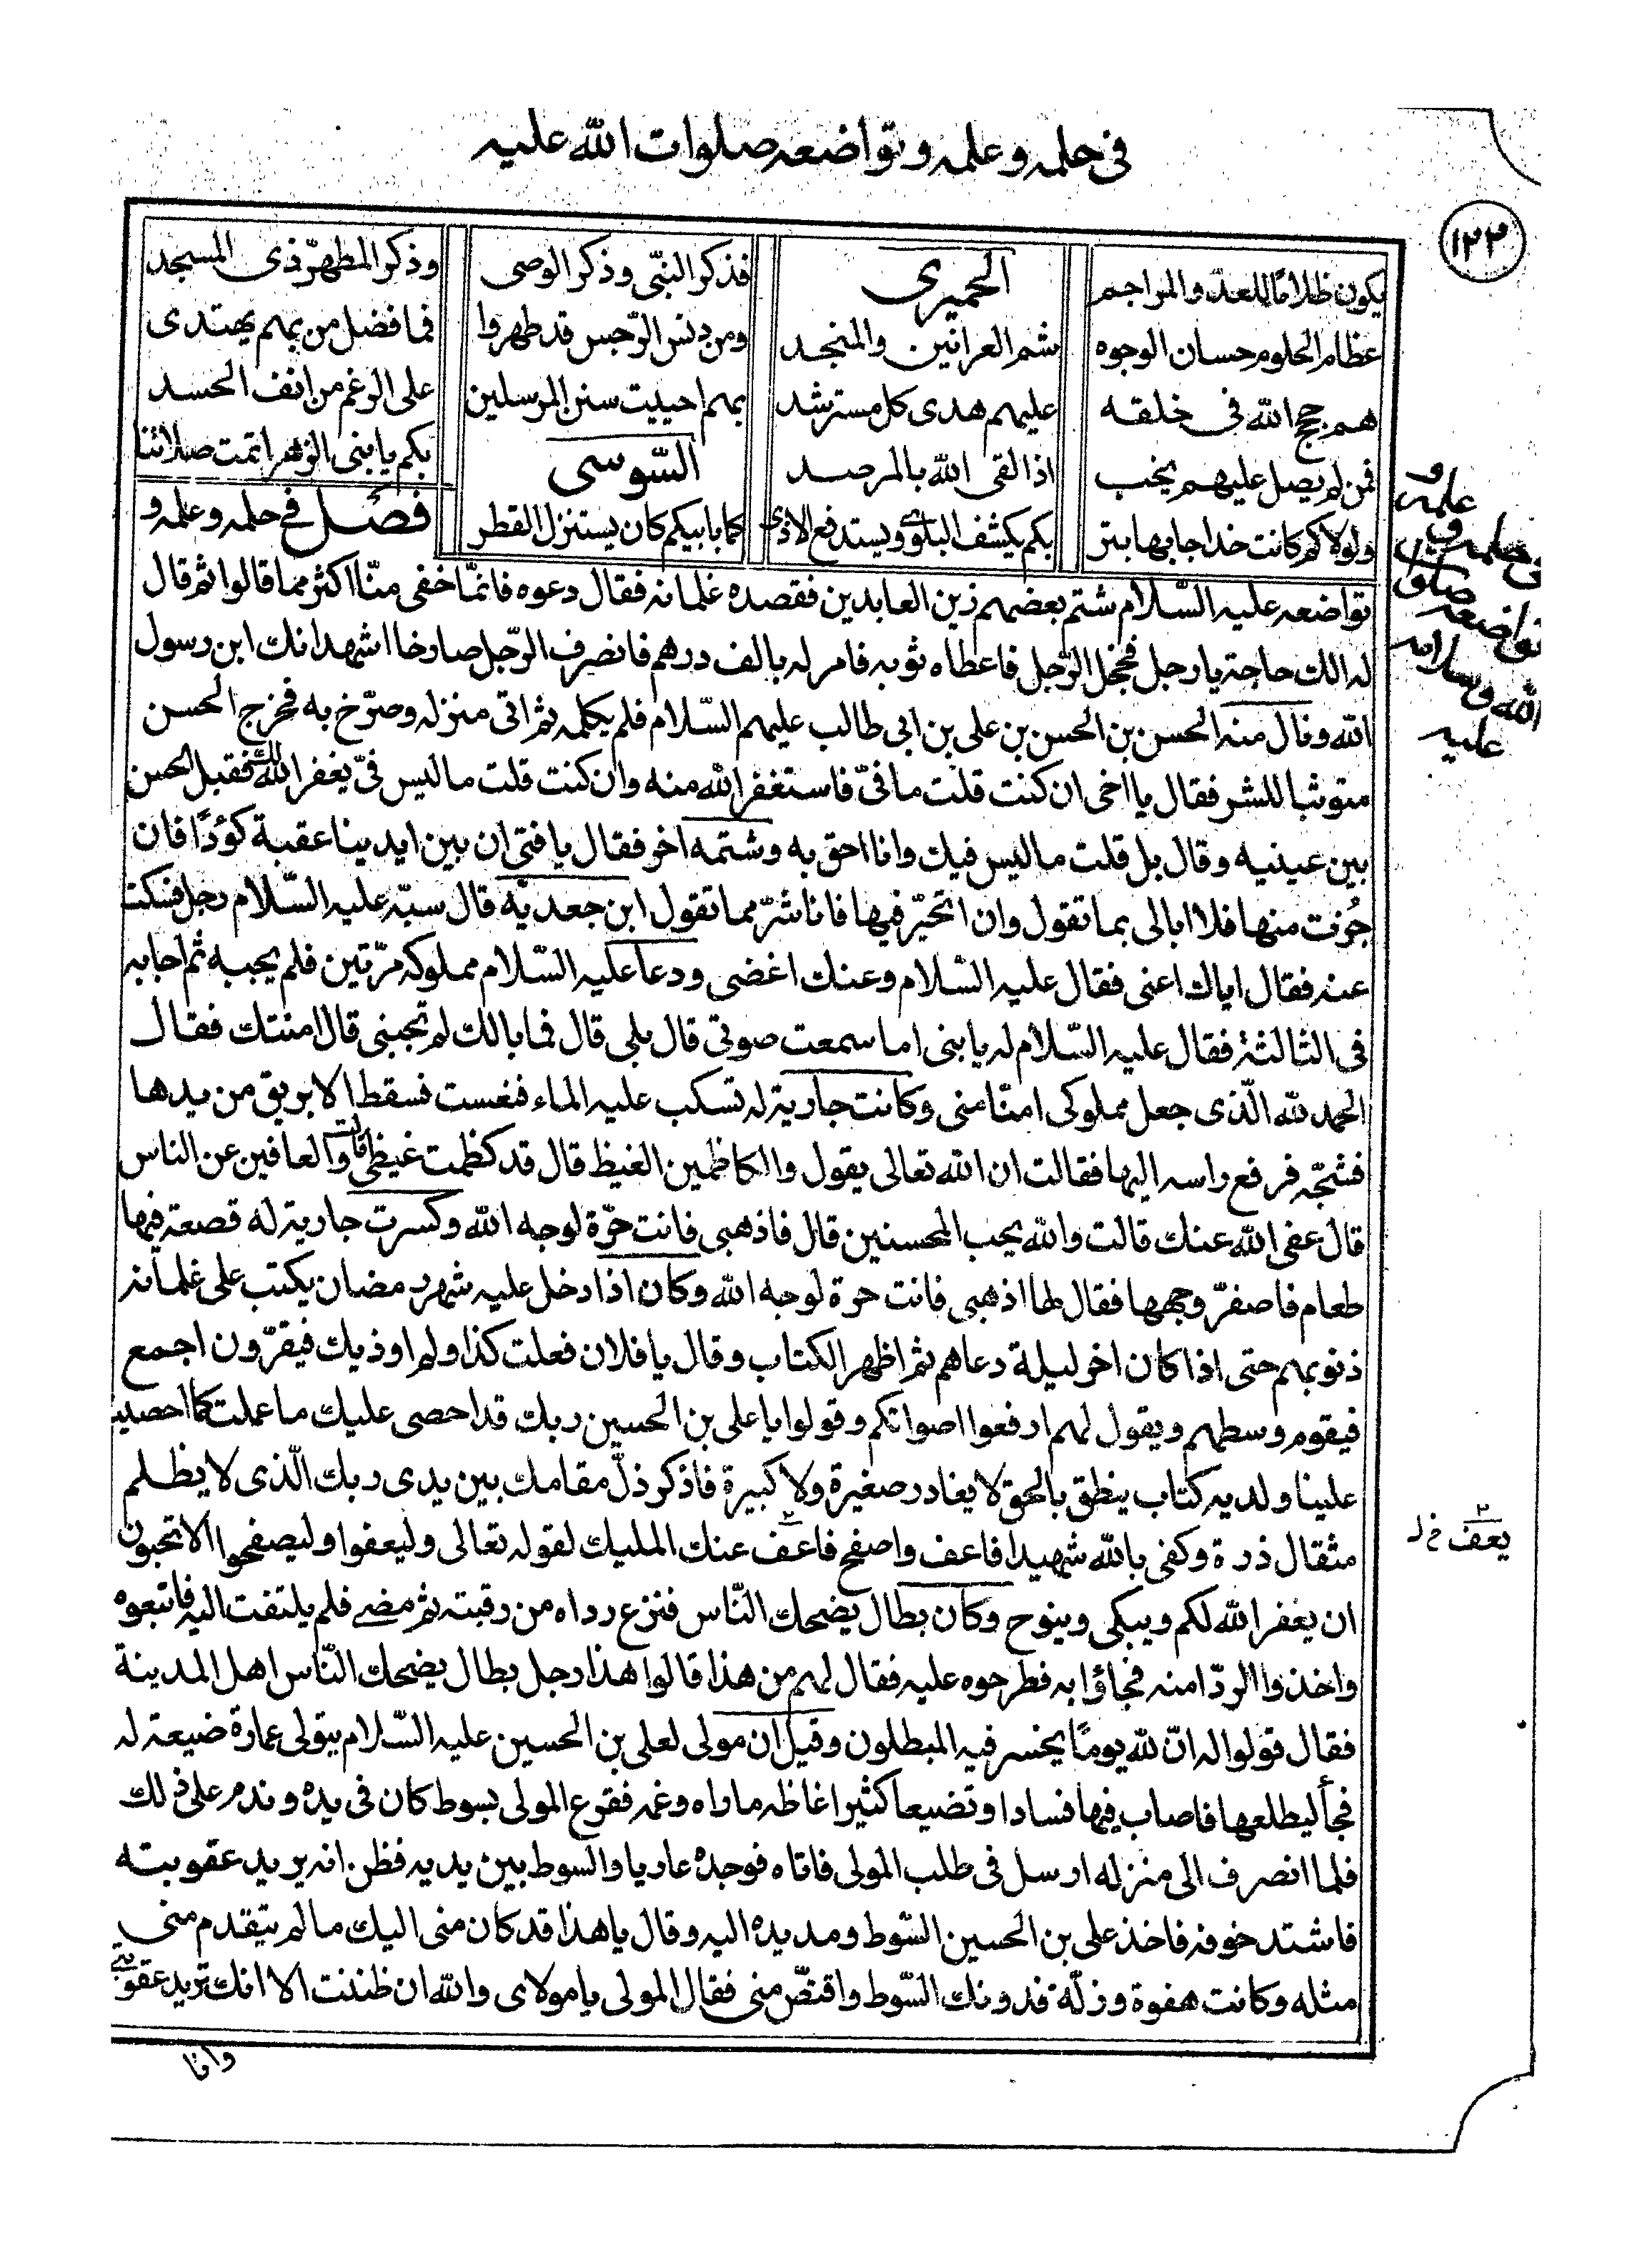 في حلمه وعلمه وتواضعه صلوات الله عليه
١٢٢
يكون ظلاما للعد والمراجم
الحميرى
فذكر النبّي وذكر الوصى وذكر المطهّر ذى المسجد
عظام الحلوم حسان الوجوه شم العرانين والمنجد
ومن دنس الرّجس قد طهروا فما فضل من بهم يهتدى
هم حجج الله فى خلقه عليهم هدى كل مسترشد
بهم احييت سنن المرسلين على الرغم من انف الحسد
فمن لم يصل عليهم يخب اذا لقى الله بالمرصد
السّوسى
بكم يا بنى الزهرا تمت صلاتنا
ولولاكم كانت خداجا بها بتر بكم يكشف البلوى ويستدفع الاذى كما بابيكم كان يستنزل القطر
فصل في حلمه وعلمه و
تواضعه عليه السّلام شتم بعضهم زين العابدين فقصده غلمانه فقال دعوه فانمّا خفى منّا اكثر مما قالوا ثم قال
له الك حاجة يا رجل فخجل الرّجل فاعطاه ثوبه فامر له بالف درهم فانصرف الرّجل صارخا اشهد انك ابن رسول
الله ونال منه الحسن بن الحسن بن على بن ابى طالب عليهم السّلام فلم يكلمه ثم اتى منزله وصرّخ به فخرج الحسن
متوثبا للشر فقال يا اخى ان كنت قلت ما فىّ فاستغفر الله منه وان كنت قلت ما ليس فىّ يغفر الله لك فقبل الحسن
بين عينيه وقال بل قلت ما ليس فيك وانا احق به وشتمه اخر فقال يا فتى ان بين ايدينا عقبة كؤدًا فان
جُزت منها فلا ابالى بما تقول وان اتحيّر فيها فانا شرّ مما تقول ابن جعديّه قال سبّه عليه السّلام رجل فسكت
عنه فقال اياك اعنى فقال عليه السّلام وعنك اغضى ودعا عليه السّلام مملوكه مرّتين فلم يجبه ثم اجابه
فى الثالثة فقال عليه السّلام له يا بنى اما سمعت صوتى قال بلى قال فما بالك لم تجبنى قال امنتك فقال
الحمد لله الّذى جعل مملوكى امنّا منى وكانت جارية له تسكب عليه الماء فنعست فسقط الابريق من يدها
فشجّه فرفع راسه اليها فقالت ان الله تعالى يقول والكاظمين الغيظ قال قد كظمت غيظى قالت والعافين عن الناس
قال عفى الله عنك قالت والله يحب المحسنين قال فاذهبى فانت حرّة لوجه الله وكسرت جارية له قصعة فيها
طعام فاصفرّ وجهها فقال لها اذهبى فانت حرة لوجه الله وكان اذا دخل عليه شهر رمضان يكتب على غلمانه
ذنوبهم حتى اذا كان اخر ليلة دعاهم ثم اظهر الكتاب وقال يا فلان فعلت كذا ولم اوذيك فيقرّون اجمع
فيقوم وسطهم ويقول لهم ارفعوا اصواتكم وقولوا يا على بن الحسين ربك قد احصى عليك ما عملت كما احصيت
علينا ولديه كتاب ينطق بالحق لا يغادر صغيرة ولا كبيرة فاذكر ذلّ مقامك بين يدى ربك الّذى لا يظلم
مثقال ذرة وكفى بالله شهيدا فاعف واصفح فاعف عنك المليك لقوله تعالى وليعفوا وليصفحوا الا تحبون
ان يغفر الله لكم ويبكى وينوح وكان بطال يضحك النّاس فنزع رداه من رقبته ثم مضى فلم يلتفت اليه فاتبعوه
واخذوا الردّا منه فجاؤا به فطرحوه عليه فقال لهم من هذا قالوا هذا رجل بطال يضحك النّاس اهل المدينة
فقال قولوا له انّ لله يومًا يخسر فيه المبطلون وقيل ان مولى لعلى بن الحسين عليه السّلام يتولى عمارة ضيعة له
فجأ ليطلعها فاصاب فيها فسادا وتضيعا كثيرا غاظه ما راه وغمه فقرع المولى بسوط كان فى يده وندم على ذلك
فلما انصرف الى منزله ارسل فى طلب المولى فاتاه فوجده عاريا والسوط بين يديه فظن انه يريد عقوبته
فاشتد خوفه فاخذ على بن الحسين السّوط ومد يده اليه وقال يا هذا قد كان منى اليك ما لم يتقدم منى
مثله وكانت هفوة وزلّة فدونك السّوط واقتصّ منى فقال المولى يا مولاى والله ان ظننت الا انك تريد عقوبتى
وانا
علمه و
في حلمه و
تواضعه صلوات
الله وسلامه
عليه
٢
يعف خ ل